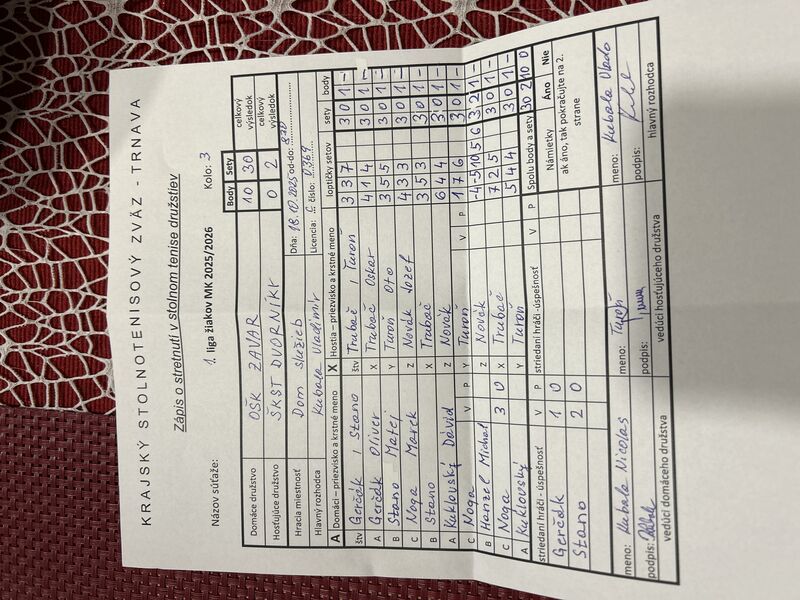 KRAJSKÝ STOLNOTENISOVÝ ZVÄZ - TRNAVA
Zápis o stretnutí v stolnom tenise družstiev
Názov súťaže: 1. liga žiakov MK 2025/2026 Kolo: 3
Body Sety
Domáce družstvo OŠK ZAVAR 10 30 celkový výsledok
Hosťujúce družstvo ŠKST DVORNÍKY 0 2 celkový výsledok
Hracia miestnosť Dom služieb Dňa: 18.10.2025 od-do:
Hlavný rozhodca Kubala Vladimír Licencia: C číslo: 0369
A Domáci – priezvisko a krstné meno X Hostia – priezvisko a krstné meno loptičky setov sety body
štv Gerčák / Stano štv Trubač / Turoň 3 3 7 3 0 1 -
A Gerčák Oliver X Trubač Oskar 4 1 4 3 0 1 -
B Stano Matej Y Turoň Oto 3 5 5 3 0 1 -
C Noga Marek Z Novák Jozef 4 3 3 3 0 1 -
B Stano X Trubač 3 5 3 3 0 1 -
A Kuklovský Dávid Z Novák 6 4 4 3 0 1 -
C Noga V P Y Turoň V P 1 7 6 3 0 1 -
B Hanzel Michal Z Novák -4 -5 10 5 6 3 2 1 -
C Noga 3 0 X Trubač 7 2 5 3 0 1 -
A Kuklovský Y Turoň 5 4 4 3 0 1 -
striedaní hráči - úspešnosť V P striedaní hráči -úspešnosť V P Spolu body a sety 30 2 10 0
Gerčák 1 0 Námietky Áno Nie
Stano 2 0 ak áno, tak pokračujte na 2. strane
meno: Kubala Nicolas meno: Turoň meno: Kubala Vlado
podpis: podpis: podpis:
vedúci domáceho družstva vedúci hosťujúceho družstva hlavný rozhodca